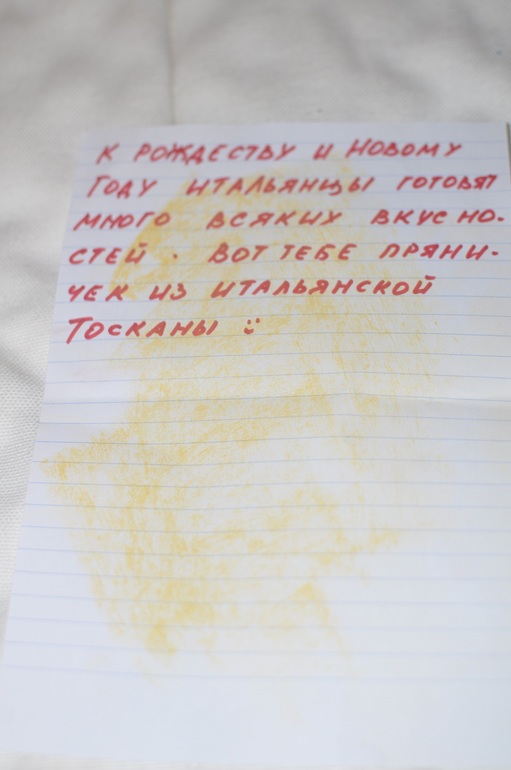 К РОЖДЕСТВУ И НОВОМУ
ГОДУ ИТАЛЬЯНЦЫ ГОТОВЯТ
МНОГО ВСЯКИХ ВКУСНО-
СТЕЙ. ВОТ ТЕБЕ ПРЯНИ-
ЧЕК ИЗ ИТАЛЬЯНСКОЙ
ТОСКАНЫ :)